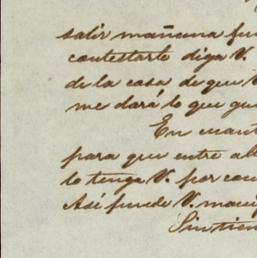 salir mañana fu
contestarle diga V.
de la casa de que V
me dará lo que gu
En cuant
para que entre all
lo tenga V. por con
Así puede V. man
Sin tien